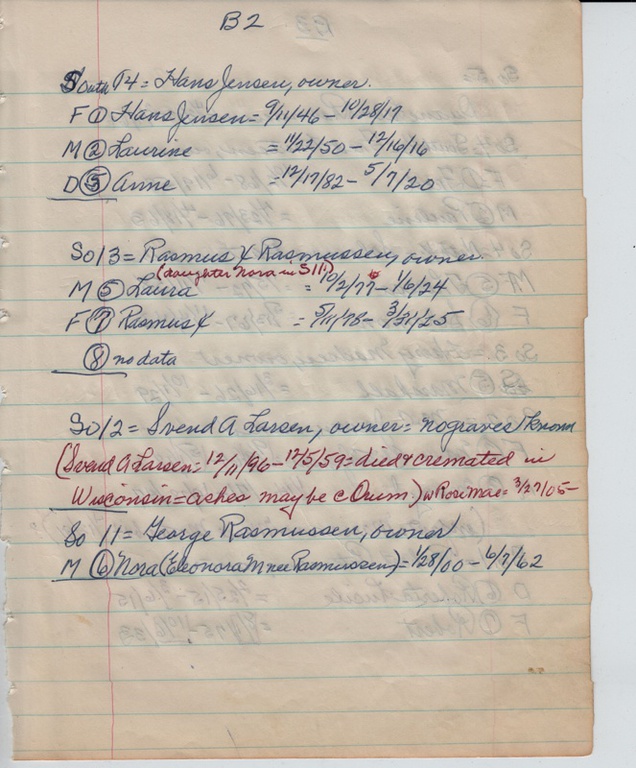 B2
South 14 = Hans Jensen, owner.
F ① Hans Jensen = 9/11/46 – 10/28/17
M ② Laurine = 11/22/50 – 12/16/16
D ⑤ Anne = 12/17/82 – 5/7/20
So 13 = Rasmus X Rasmussen, owner.
(daughter Nora in S11)
M ⑤ Laura = 10/2/77 – 1/6/24
F ⑦ Rasmus X = 5/11/78 – 3/31/25
⑧ no data
So 12 = Svend A Larsen, owner = no graves known
(Svend A Larsen = 12/11/96 – 12/5/59 = died & cremated in
Wisconsin = ashes may be c Drum.) w Rose Mae = 3/27/05 –
So 11 = George Rasmussen, owner
M ⑥ Nora (Eleonora M nee Rasmussen) = 1/28/00 – 6/7/62